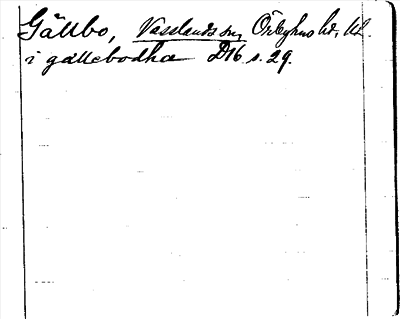 Gällbo, Vasslands sn, Örbyhus hd, Ul.
i gällebodha D16 s. 29.